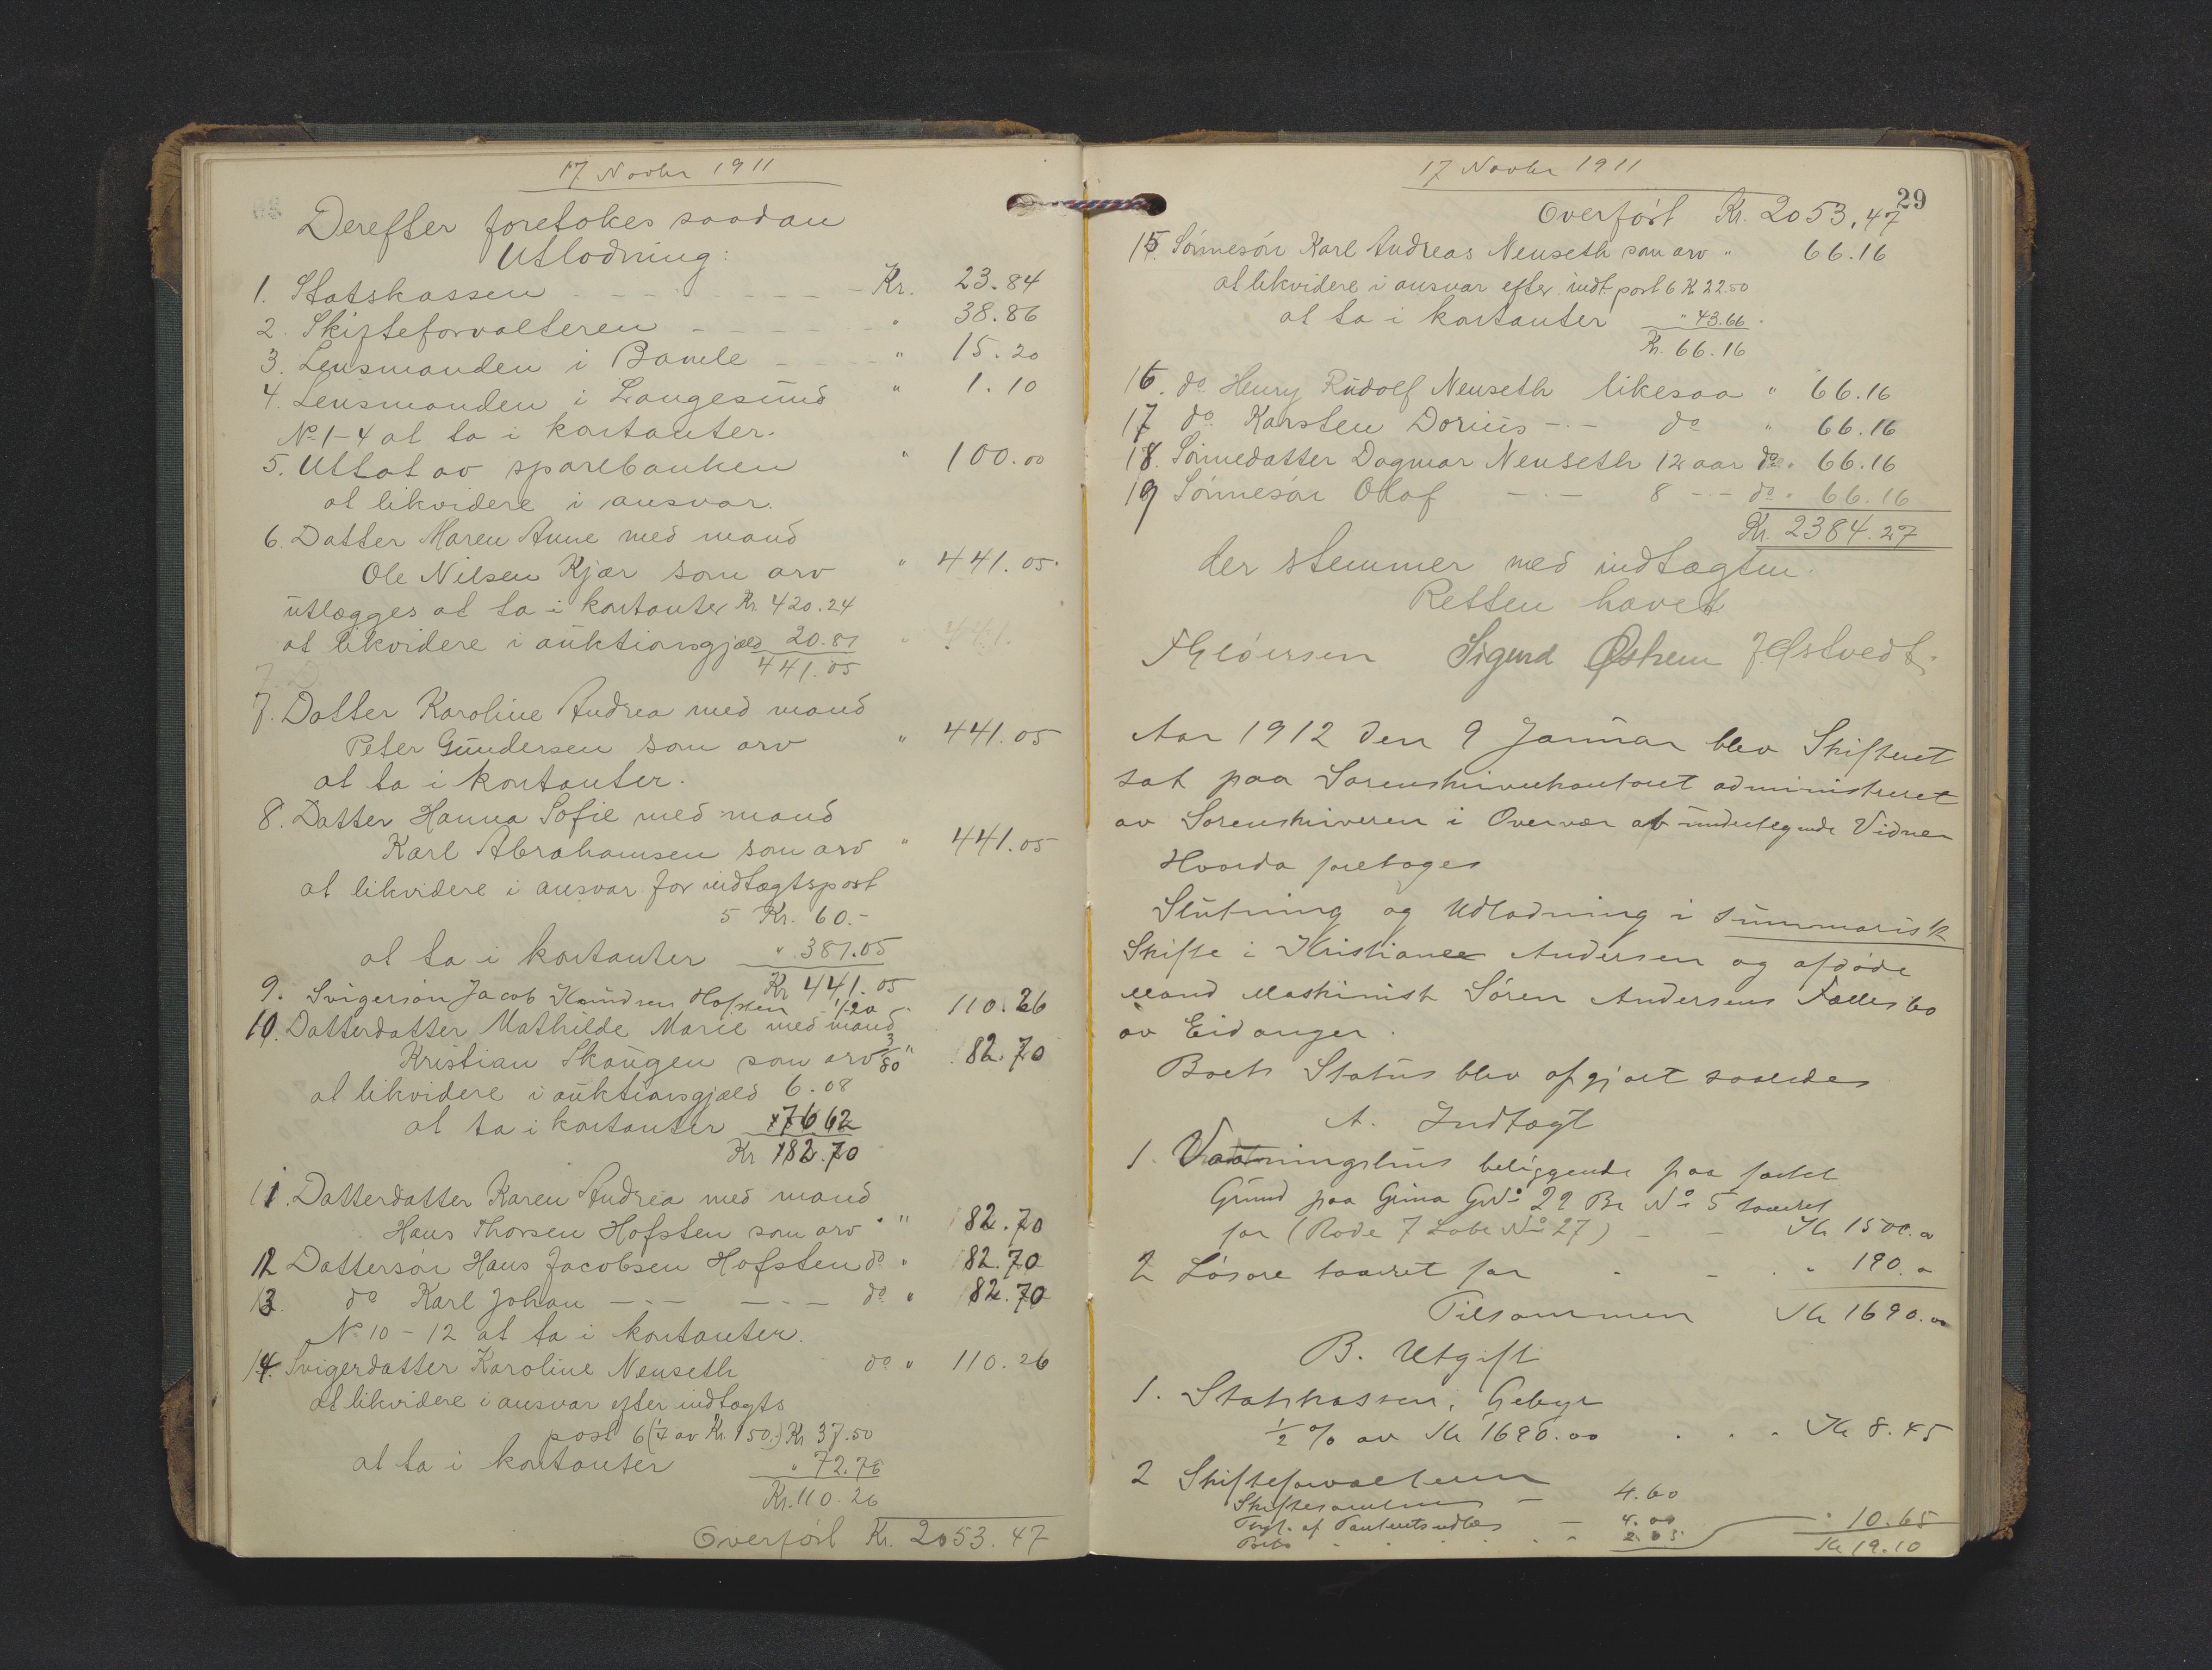 17 Novbr 1911
Derefter foretokes saadan
Utlodning:
1. Statskassen - - - - - - - - - Kr. 23.84
2. Skifteforvalteren - - - - - - " 38.86
3. Lensmanden i Bamle - - - " 15.20
4. Lensmanden i Langesund " 1.10
No 1-4 at ta i kontanter.
5. Uttat av sparebanken " 100.00
at likvidere i ansvar.
6. Datter Maren Anne med mand
Ole Nilsen Kjær som arv " 441.05.
utlægges at ta i kontanter Kr. 420.24
at likvidere i auktionsgjæld 20.81
441.05
7. Datter Karoline Andrea med mand
Peter Gundersen som arv " 441.05
at ta i kontanter.
8. Datter Hanna Sofie med mand
Karl Abrahamsen som arv " 441.05
at likvidere i ansvar for indtægtspost
5 Kr. 60.-
at ta i kontanter " 381.05
Kr 441.05
9. Svigersøn Jacob Knudsen Hofsten 1/20 110.26
10. Datterdatter Mathilde Marie med mand
Kristian Skaugen som arv 3/80 " 82.70
at likvidere i auktionsgjæld 6.08
at ta i kontanter 76 62
Kr 82.70
11. Datterdatter Karen Andrea med mand
Hans Thorsen Hofsten som arv " " 82.70
12 Dattersøn Hans Jacobsen Hofsten do " 82.70
13. do Karl Johan - - - - - - do " 82.70
No 10-12 at ta i kontanter.
14. Svigerdatter Karoline Nenseth do " 110.26
at likvidere i ansvar efter indtægts
post 6 (1/4 av Kr. 150.-) Kr 37.50
at ta i kontanter " 72.76
Kr. 110.26
Overført Kr. 2053.47
17 Novbr 1911
29
Overført Kr. 2053.47
15. Sønnesøn Karl Andreas Nenseth som arv " 66.16
at likvidere i ansvar efter indt. post 6 Kr 22.50
at ta i kontanter " 43.66.
Kr. 66.16
16. do Henry Rudolf Nenseth likesaa " 66.16
17 do Karsten Dorius -.- do " 66.16
18. Sønnedatter Dagmar Nenseth 12 aar do " 66.16
19 Sønnesøn Olaf -.- 8 -.- do " 66.16
Kr. 2384.27
der stemmer med indtægten.
Retten hævet
Sigurd Østrem J. Østvedt.
Aar 1912 den 9 Januar blev Skifteret
sat paa Sorenskriverkontoret administreret
av Sorenskriveren i Overvær af undertegnede Vidner
Hvorda foretoges
Slutning og Udlodning i summarisk
Skifte i Kristiane Andersen og afdøde
Mand Maskinist Søren Andersens Fællesbo
av Eidanger.
Boets Status blev opgjort saaledes
A. Indtægt
1. Vaaningshus beliggende paa fæstet
Grund paa Grina GNo 22 Br No 5 taxeret
for (Rode 7 Løbe No 27) - - Kr 1500.00
2 Løsøre taxeret for - - - " 190.00
Tilsammen Kr 1690.00
B. Utgift
1. Statskassen, Gebyr
1/2 % av Kr 1690.00 . . . Kr 8.45
2 Skifteforvalteren
Skiftesamling - 4.60
Tingl. af Panterets udlæg - 4.00
Porto . . . . . 2.05 " 10.65
Kr 19.10